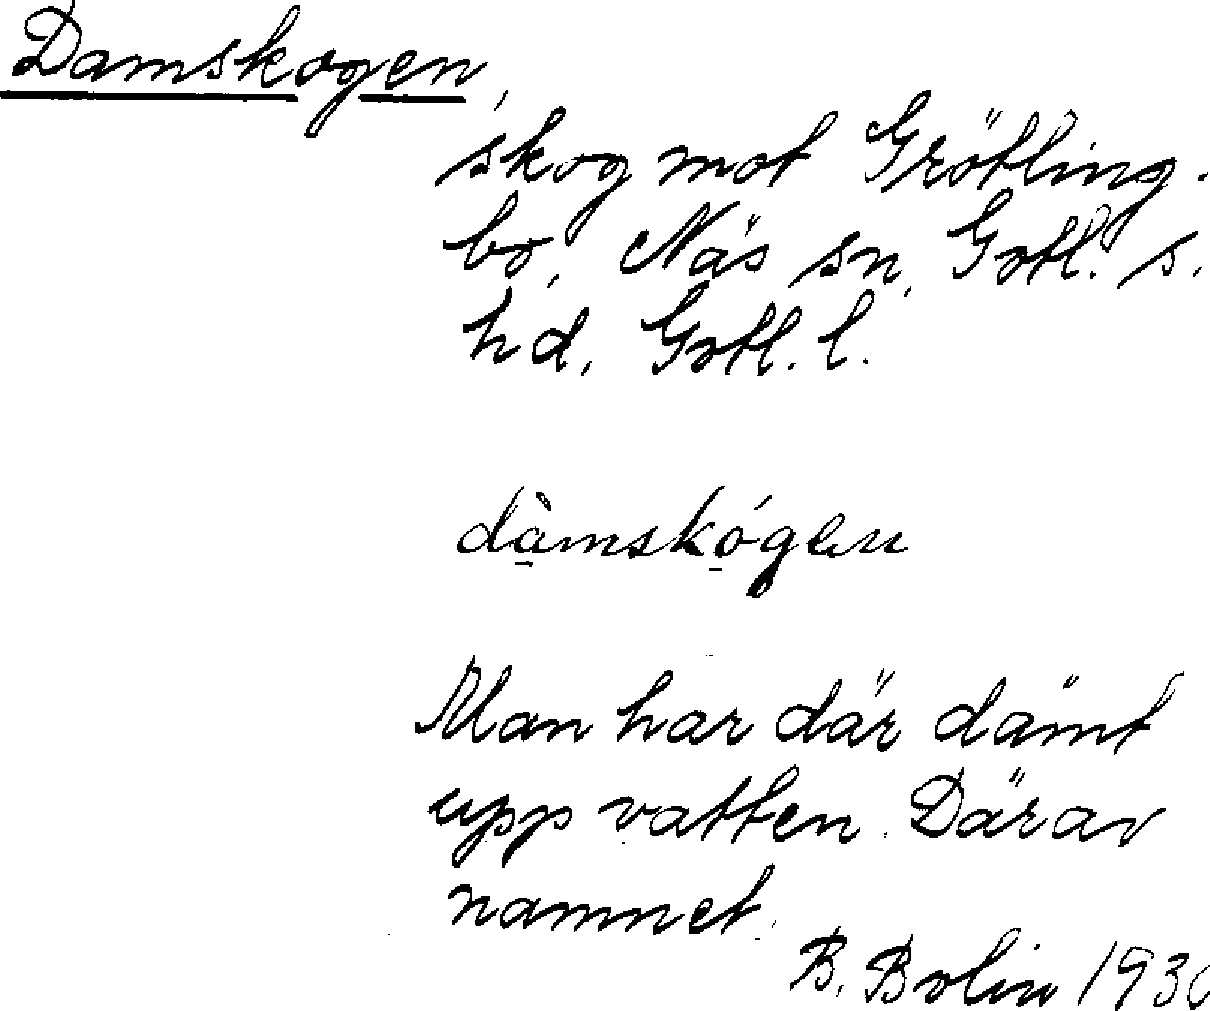 Damskogen,
skog mot Grötling-
bo, Näs sn, Gotl. s.
hd, Gotl. l.
dàmskógen
Man har där dämt
upp vatten. Därav
namnet.
B. Bolin 1930